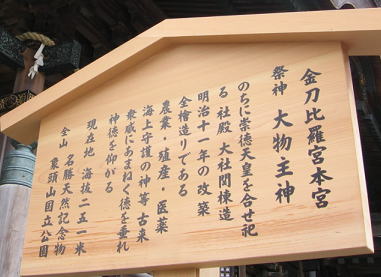 金刀比羅宮本宮
祭神 大物主神
のちに崇徳天皇を合せ祀
る 社殿 大社関棟造
明治十一年の改築
全檜造りである
農業・殖産・医薬
海上守護の神等 古来
衆庶にあまねく徳を垂れ
神徳を仰がる
現在地 海抜二五一米
全山 名勝天然記念物
象頭山国立公園